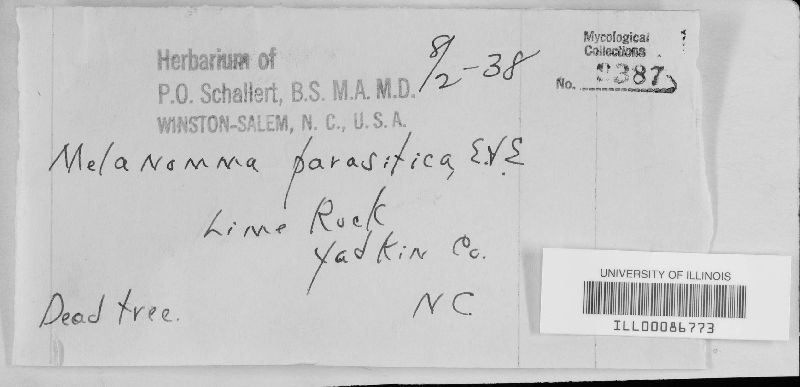 Herbarium of
P.O. Schallert, B.S. M.A. M.D.
WINSTON-SALEM, N. C., U. S. A.
8/2-38
Mycological
Collections
No. 9387
Melanomma parasitica, E.V.E
Lime Rock
Yadkin Co.
N C.
Dead tree.
UNIVERSITY OF ILLINOIS
ILL00086773